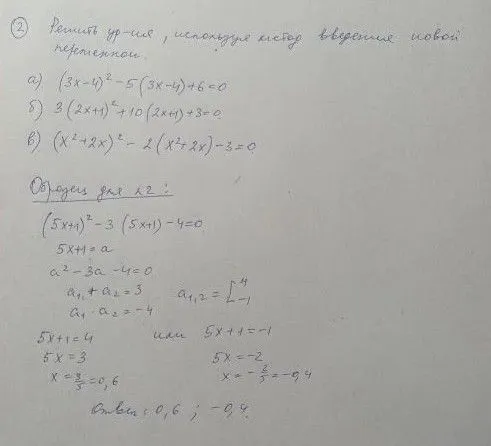 ② Решить ур-ия, используя метод введения новой
переменной.
а) (3x-4)² - 5(3x-4)+6=0
б) 3(2x+1)² +10(2x+1)+3=0
в) (x²+2x)² - 2(x²+2x)-3=0
Образец для №2:
(5x+1)² - 3(5x+1) - 4=0
5x+1=a
a² - 3a - 4=0
a₁ + a₂ = 3
a₁,₂ = [4 -1
a₁ · a₂ = -4
5x+1=4 или 5x+1=-1
5x=3 5x=-2
x=3/5=0,6 x=-2/5=-0,4
Ответ: 0,6 ; -0,4.